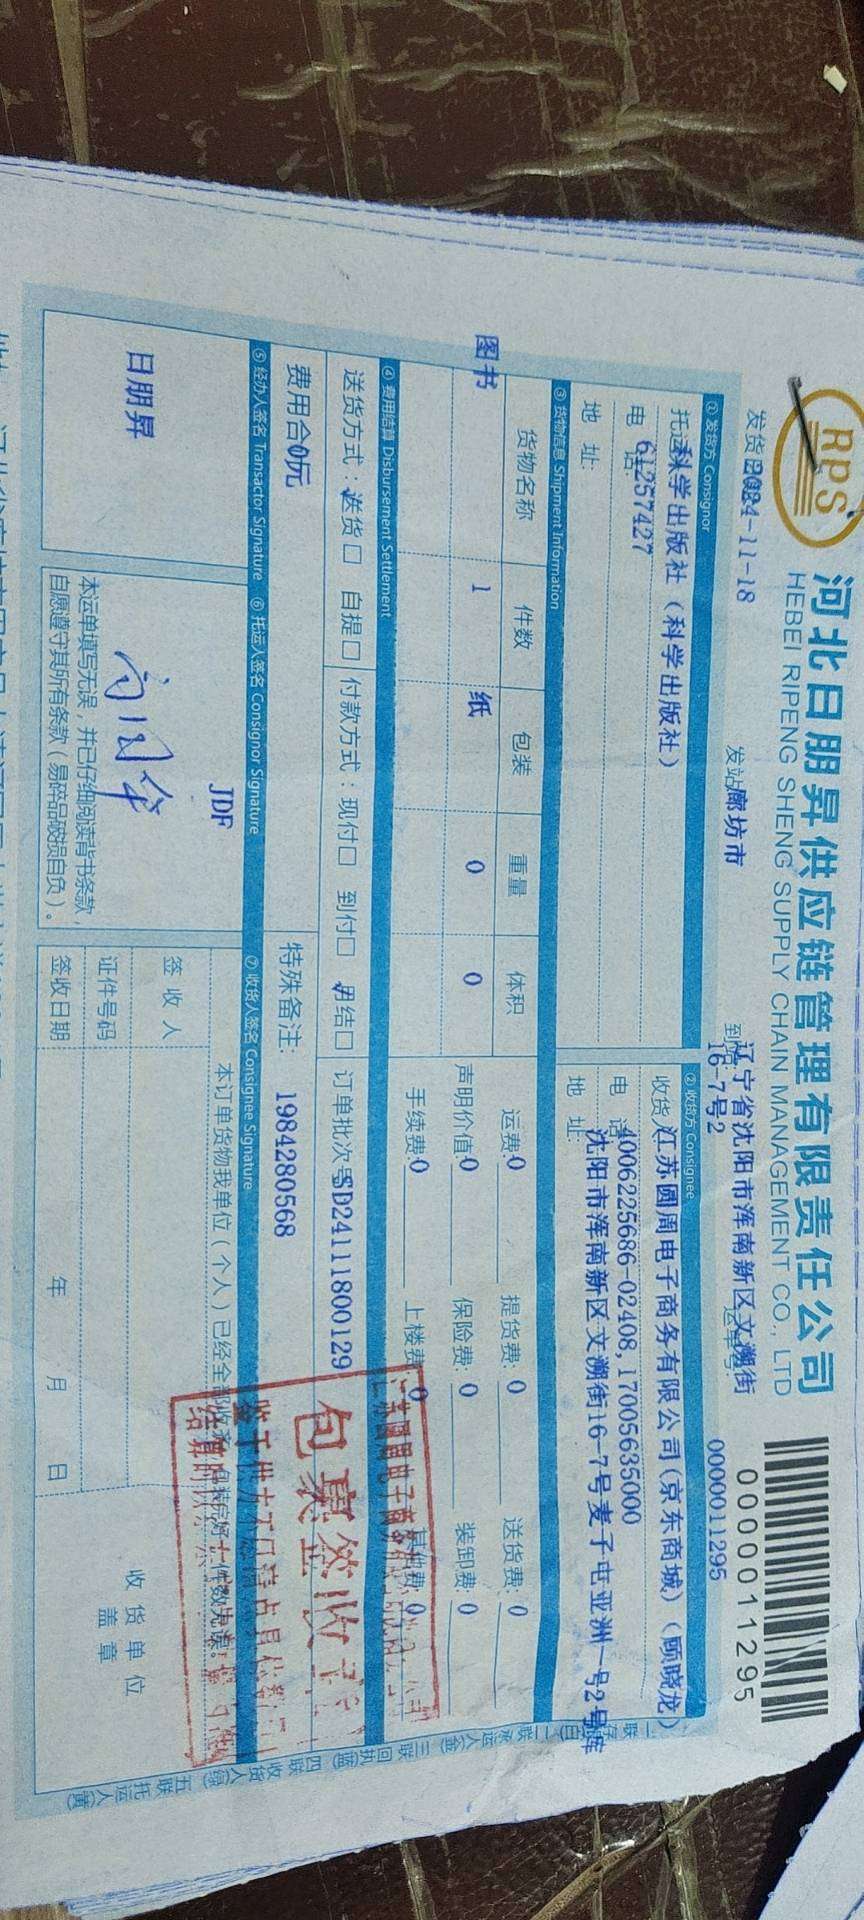 RPS
河北日朋昇供应链管理有限责任公司
HEBEI RIPENG SHENG SUPPLY CHAIN MANAGEMENT CO., LTD
0000011295
发货日期: 2024-11-18
发站: 廊坊市
到站: 辽宁省沈阳市浑南新区文溯街
16-7号2
运单号:
0000011295
① 发货方 Consignor
② 收货方 Consignee
托运人: 科学出版社（科学出版社）
收货人: 江苏圆周电子商务有限公司(京东商城)（顾晓龙）
电 话: 61257427
电 话: 4006225686-02408,17005635000
地 址:
地 址: 沈阳市浑南新区文溯街16-7号麦子屯亚洲一号2号库
③ 货物信息 Shipment Information
货物名称 件数 包装 重量 体积
图书 1 纸 0 0
运费:0 提货费: 0 送货费: 0
声明价值0 保险费: 0 装卸费: 0
手续费:0 上楼费: 0 其他费: 0
④ 费用结算 Disbursement Settlement
送货方式：送货□ 自提□
付款方式：现付□ 到付□ 月结□
订单批次号SD24111800129
费用合0元
特殊备注: 1984280568
⑤ 经办人签名 Transactor Signature
⑥ 托运人签名 Consignor Signature
⑦ 收货人签名 Consignee Signature
日朋昇
JDF
本运单填写无误，并已仔细阅读背书条款，
自愿遵守其所有条款（易碎品破损自负）。
本订单货物我单位（个人）已经全部收到，包装完好，件数无误。
签 收 人
证件号码
签收日期: 年 月 日
收 货 单 位
盖 章
包裹签收
一联 二联承运人(金) 三联回执(蓝) 四联收货人(绿) 五联托运人(黄)